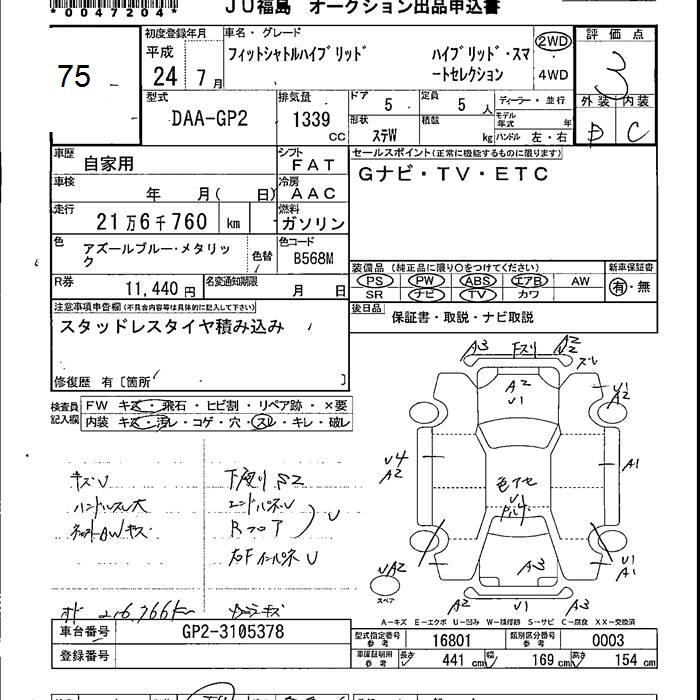 *0047204*
JU福島 オークション出品申込書
75
初度登録年月
平成
24年 7月
車名・グレード
フィットシャトルハイブリッド ハイブリッド・スマートセレクション
2WD
4WD
評価点
3
外装 内装
D C
型式
DAA-GP2
排気量
1339
CC
ドア 5
定員 5人
ディーラー・並行
形状 ステW
積載 kg
モデル年式 年
ハンドル 左・右
車歴 自家用
シフト FAT
車検 年 月( 日)
冷房 AAC
走行 21万6千760 km
燃料 ガソリン
色 アズールブルー・メタリック
色替
色コード B568M
R券 11,440円
名変通知期限 月 日
セールスポイント(正常に機能するものに限ります)
Gナビ・TV・ETC
装備品 (純正品に限り○をつけてください)
PS PW ABS エアB AW
SR ナビ TV カワ
新車保証書
有・無
後日品 保証書・取説・ナビ取説
注意事項申告欄(不具合内容等は具体的に記入して下さい)
スタッドレスタイヤ積み込み
修復歴 有〔箇所 〕
検査員記入欄
FW キズ・飛石・ヒビ割・リペア跡・×要
内装 キズ・汚レ・コゲ・穴・スレ・キレ・破レ
キズU
ハンドルスレ大
下廻り S2
エンドパネU
Rフロア
U
A3 下スリ A2
A2
U1
U1
A2
U4
A2
A1
色アセ
U1
A3
UA2
スペア
U1
A1
A2 U1 A3
A-キズ E-エクボ U-凹み W-補修跡 S-サビ C-腐食 XX-交換済
車台番号 GP2-3105378
登録番号
型式指定番号 参考 16801
類別区分番号 参考 0003
車庫証明用 参考 長さ 441 cm 幅 169 cm 高さ 154 cm